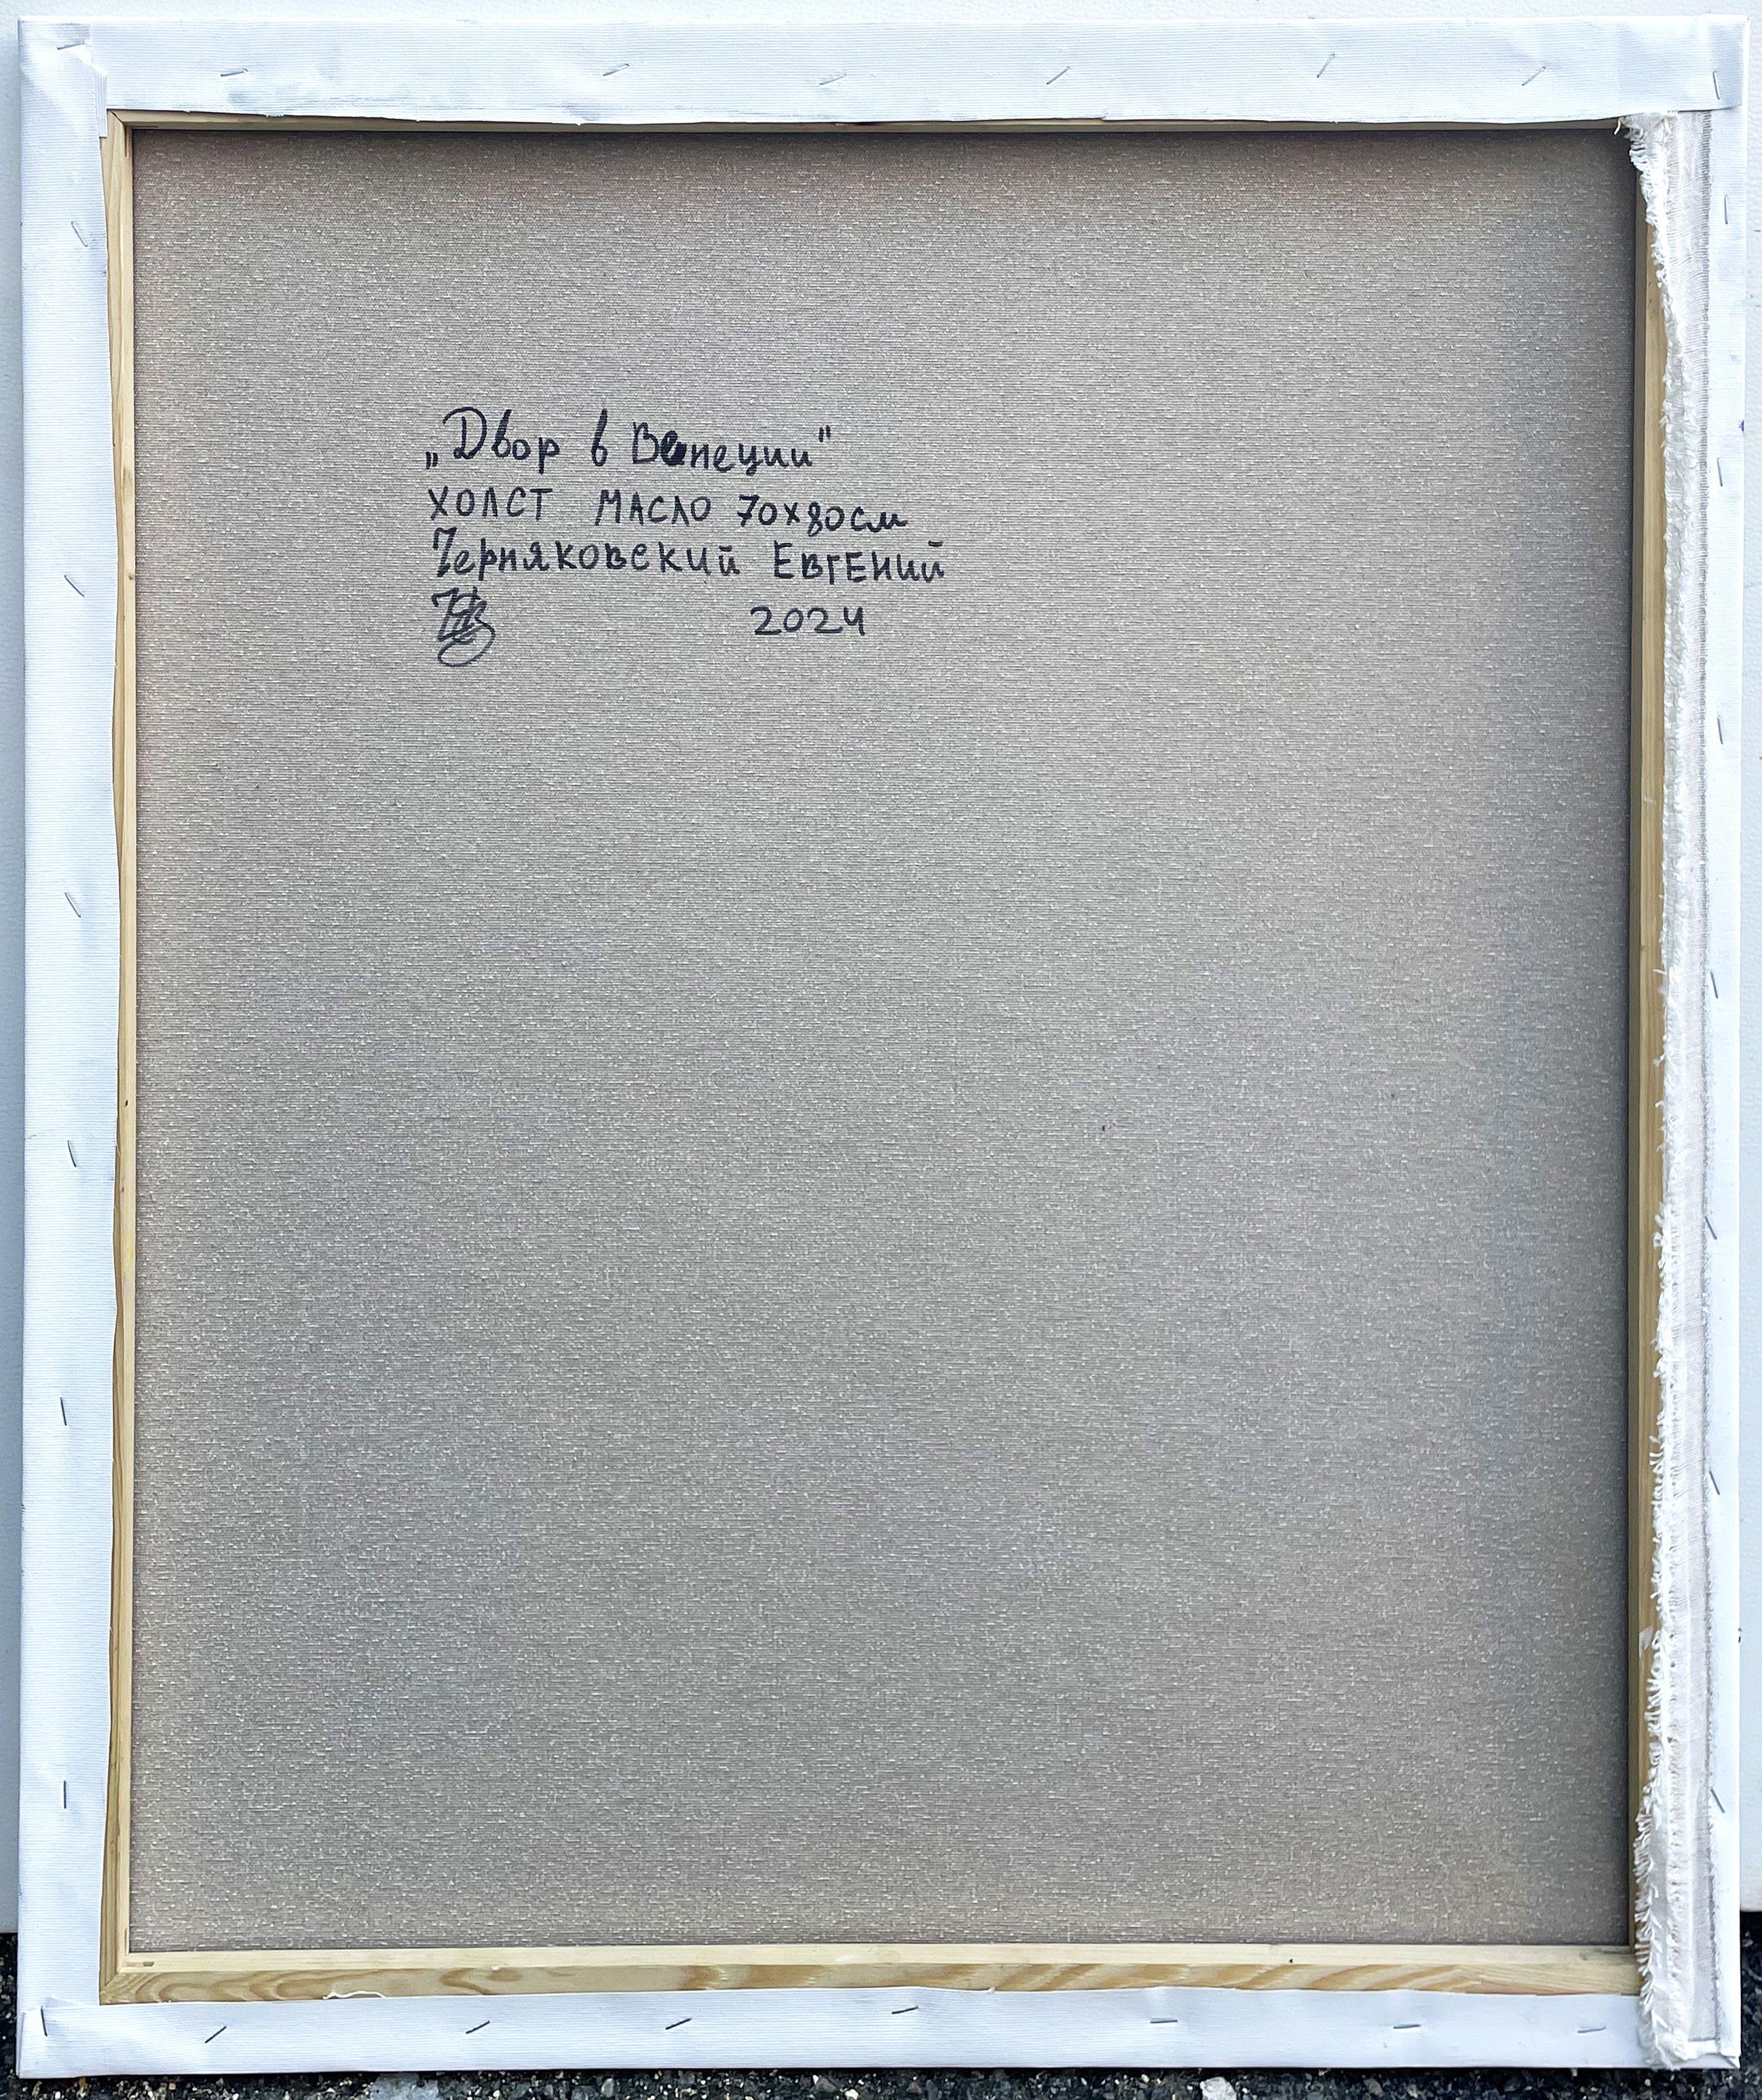 „Двор в Венеции"
ХОЛСТ МАСЛО 70х80см
Черняковский ЕВГЕНИЙ
2024